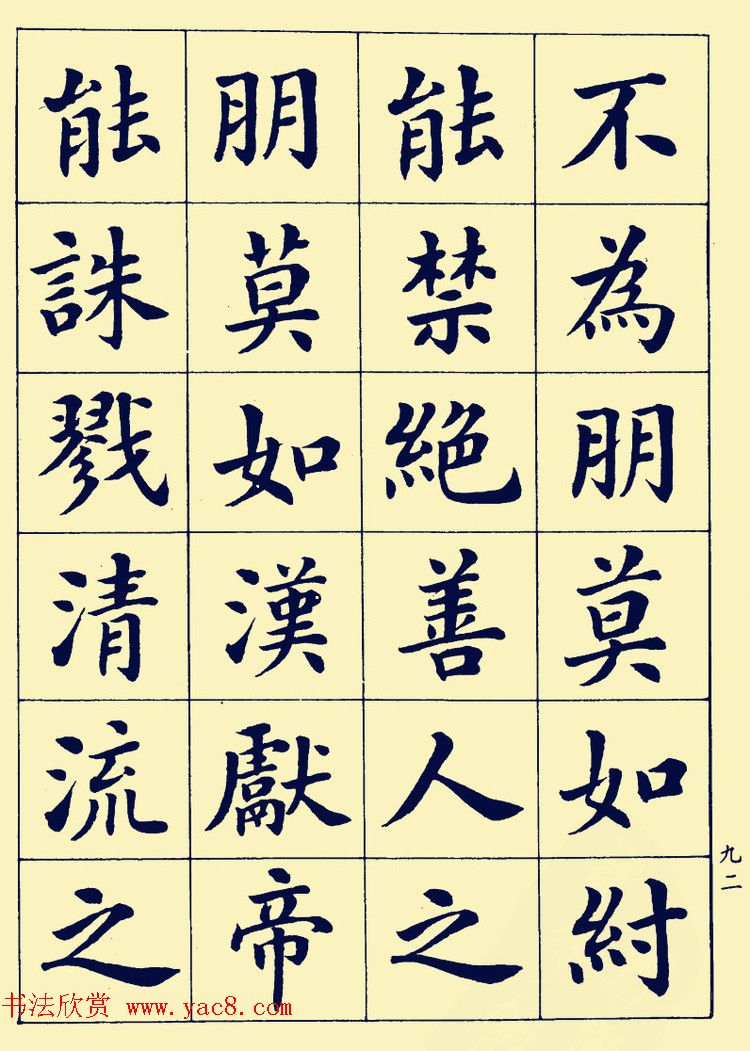 不為朋莫如紂
能禁絕善人之
朋莫如漢獻帝
能誅戮清流之
九二
书法欣赏 www.yac8.com